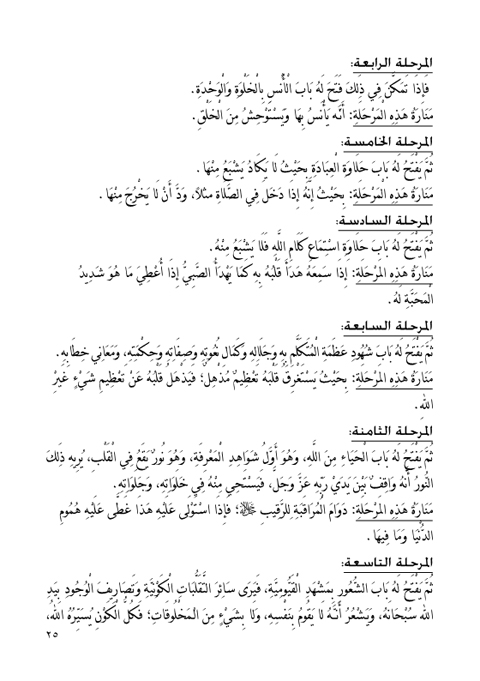 المرحلة الرابعة:
فَإِذَا تَمَكَّنَ فِي ذَلِكَ فَتَحَ لَهُ بَابَ الْأُنْسِ بِالْخَلْوَةِ وَالْوَحْدَةِ.
مَنَارَةُ هَذِهِ الْمَرْحَلَةِ: أَنَّه يَأْنَسُ بِهَا وَيَسْتَوْحِشُ مِنَ الْخَلْقِ.
المرحلة الخامسة:
ثُمَّ يَفْتَحُ لَهُ بَابَ حَلَاوَةِ الْعِبَادَةِ بِحَيْثُ لَا يَكَادُ يَشْبَعُ مِنْهَا.
مَنَارَةُ هَذِهِ الْمَرْحَلَةِ: بِحَيْثُ إِنَّهُ إِذَا دَخَلَ فِي الصَّلَاةِ مثلًا، وَدَّ أَنْ لَا يَخْرُجَ مِنْهَا.
المرحلة السادسة:
ثُمَّ يَفْتَحُ لَهُ بَابَ حَلَاوَةِ اسْتِمَاعِ كَلَامِ اللَّهِ فَلَا يَشْبَعُ مِنْهُ.
مَنَارَةُ هَذِهِ المرْحَلَةِ: إِذَا سَمِعَهُ هَدَأَ قَلْبُهُ بِهِ كَمَا يَهْدَأُ الصَّبِيُّ إِذَا أُعْطِيَ مَا هُوَ شَدِيدُ
المَحَبَّةِ لَهُ.
المرحلة السابعة:
ثُمَّ يَفْتَحُ لَهُ بَابَ شُهُودِ عَظَمَةِ الْمُتَكَلِّمِ بِهِ وَجَلَالِهِ وَكَمَالِ نُعُوتِهِ وَصِفَاتِهِ وَحِكْمَتِهِ، وَمَعَانِي خِطَابِهِ.
مَنَارَةُ هَذِهِ المرْحَلَةِ: بِحَيْثُ يَسْتَغْرِقُ قَلْبَهُ تَعْظِيمٌ مُذْهِلٌ؛ فَيَذْهَلُ قَلْبُهُ عَنْ تَعْظِيمِ شَيْءٍ غَيْرَ
الله.
المرحلة الثامنة:
ثُمَّ يَفْتَحُ لَهُ بَابَ الْحَيَاءِ مِنَ اللَّهِ، وَهُوَ أَوَّلُ شَوَاهِدِ الْمَعْرِفَةِ، وَهُوَ نُورٌ يَقَعُ فِي الْقَلْبِ، يُرِيهِ ذَلِكَ
النُّورُ أَنَّهُ وَاقِفٌ بَيْنَ يَدَيْ رَبِّهِ عَزَّ وَجَلَّ، فَيَسْتَحِي مِنْهُ فِي خَلَوَاتِهِ، وَجَلَوَاتِهِ.
مَنَارَةُ هَذِهِ المرْحَلَةِ: دَوَامُ الْمُرَاقَبَةِ لِلرَّقِيبِ ﷻ؛ فإِذَا اسْتَوْلى عَلَيْهِ هَذَا غَطَّى عَلَيْهِ هُمُومَ
الدُّنْيَا وَمَا فِيهَا.
المرحلة التاسعة:
ثُمَّ يَفْتَحُ لَهُ بَابَ الشُّعُورِ بِمَشْهَدِ الْقَيُّومِيَّةِ، فَيَرَى سَائِرَ التَّقَلُّبَاتِ الْكَوْنِيَّةِ وَتَصَارِيفَ الْوُجُودِ بِيَدِ
الله سُبْحَانَهُ، وَيَشْعُرُ أَنَّهُ لَا يَقُومُ بِنَفْسِهِ، وَلَا بِشَيْءٍ مِنَ الْمَخْلُوقَاتِ؛ فَكُلُّ الْكَوْنِ يُسَيِّرُهُ اللَّهُ،
٢٥